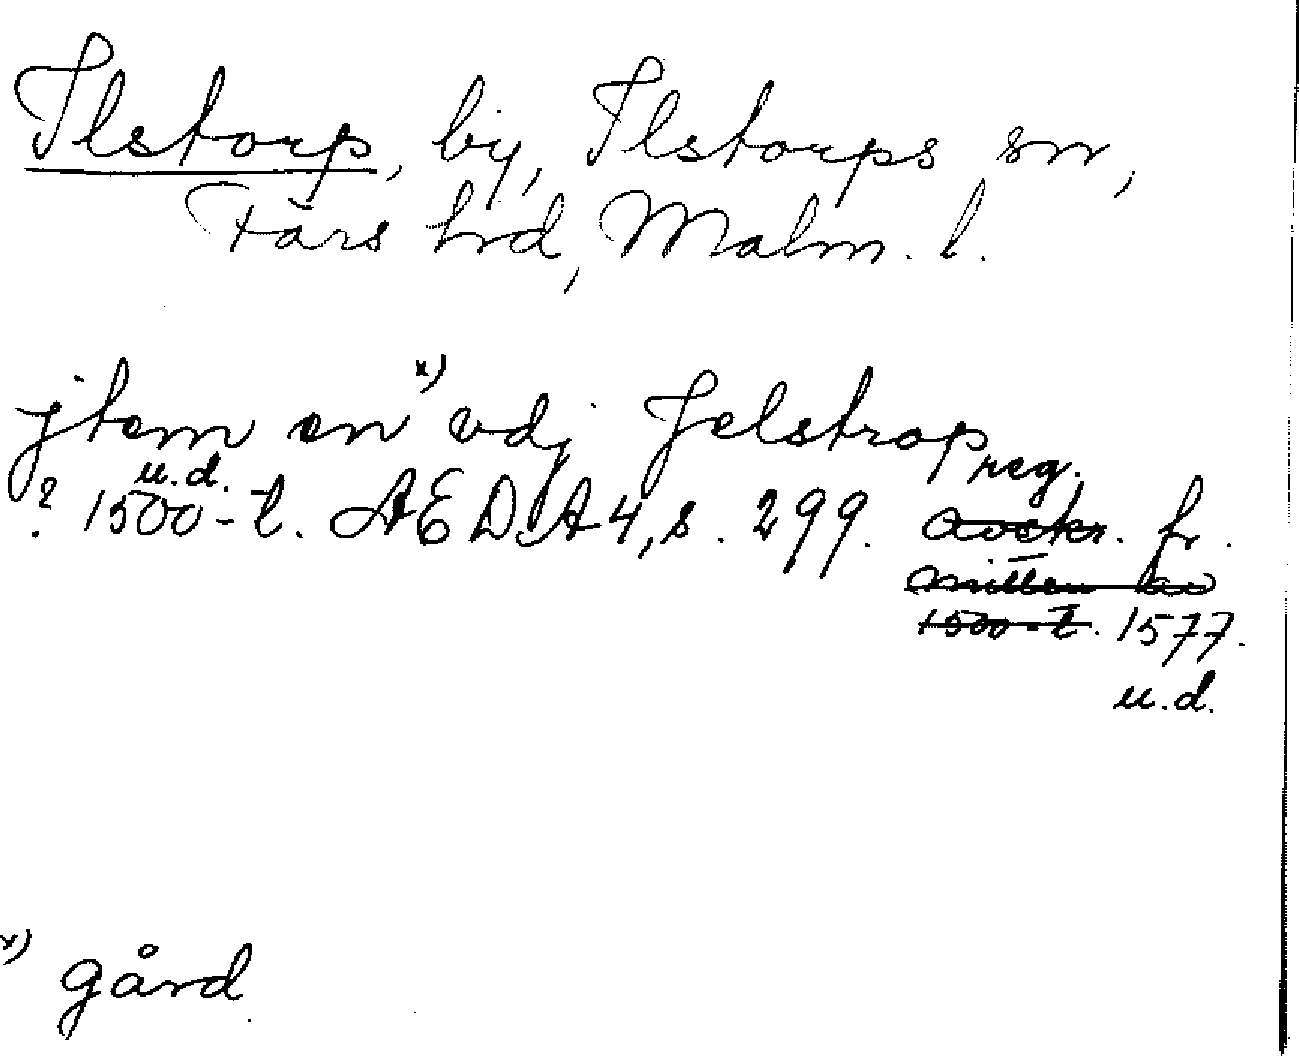 Ilstorp, by, Ilstorps sn,
Färs hrd, Malm. l.
jtem en x) vdj Jelstrop
u.d. reg.
? 1500-t. AEDA4, s. 299. avskr. fr.
mitten av
1500-t. 1577.
u.d.
x) gård